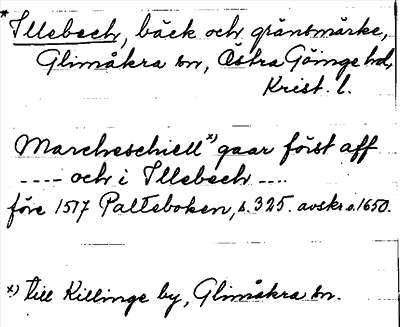 * Illebech, bäck och gränsmärke,
Glimåkra sn, Östra Göinge hd,
Krist. l.
Marcheschiell *) gaar först aff
---- och i Illebech ----
före 1517 Palteboken, s. 325. avskr. o. 1650.
*) till Killinge by, Glimåkra sn.